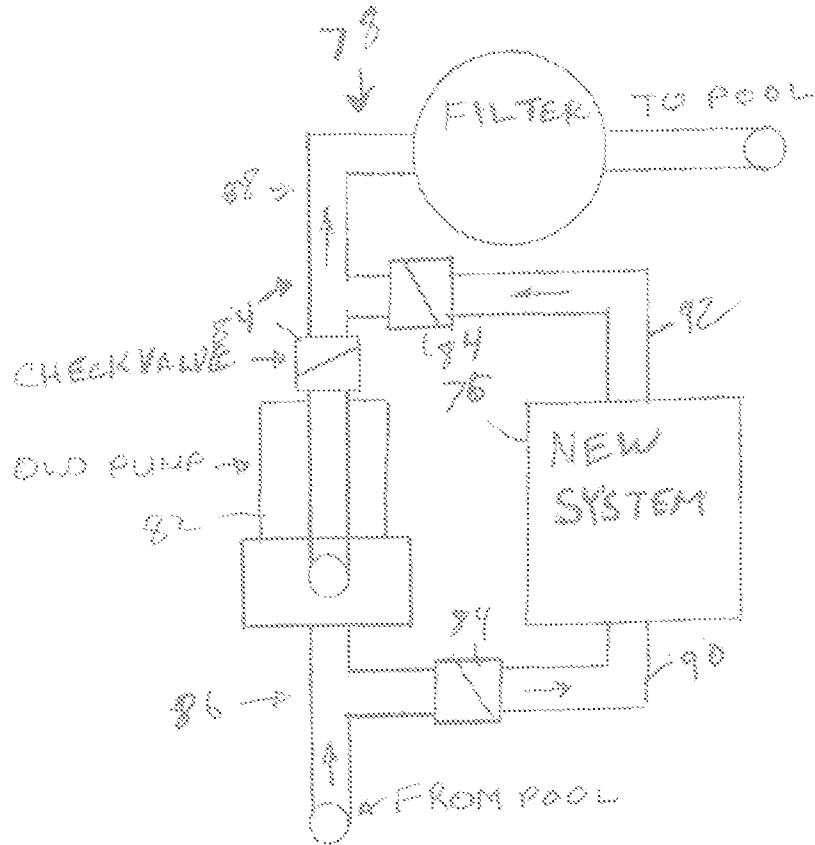 78
FILTER
TO POOL
CHECK VALVE
84
76
92
OLD PUMP
82
NEW
SYSTEM
86
90
FROM POOL